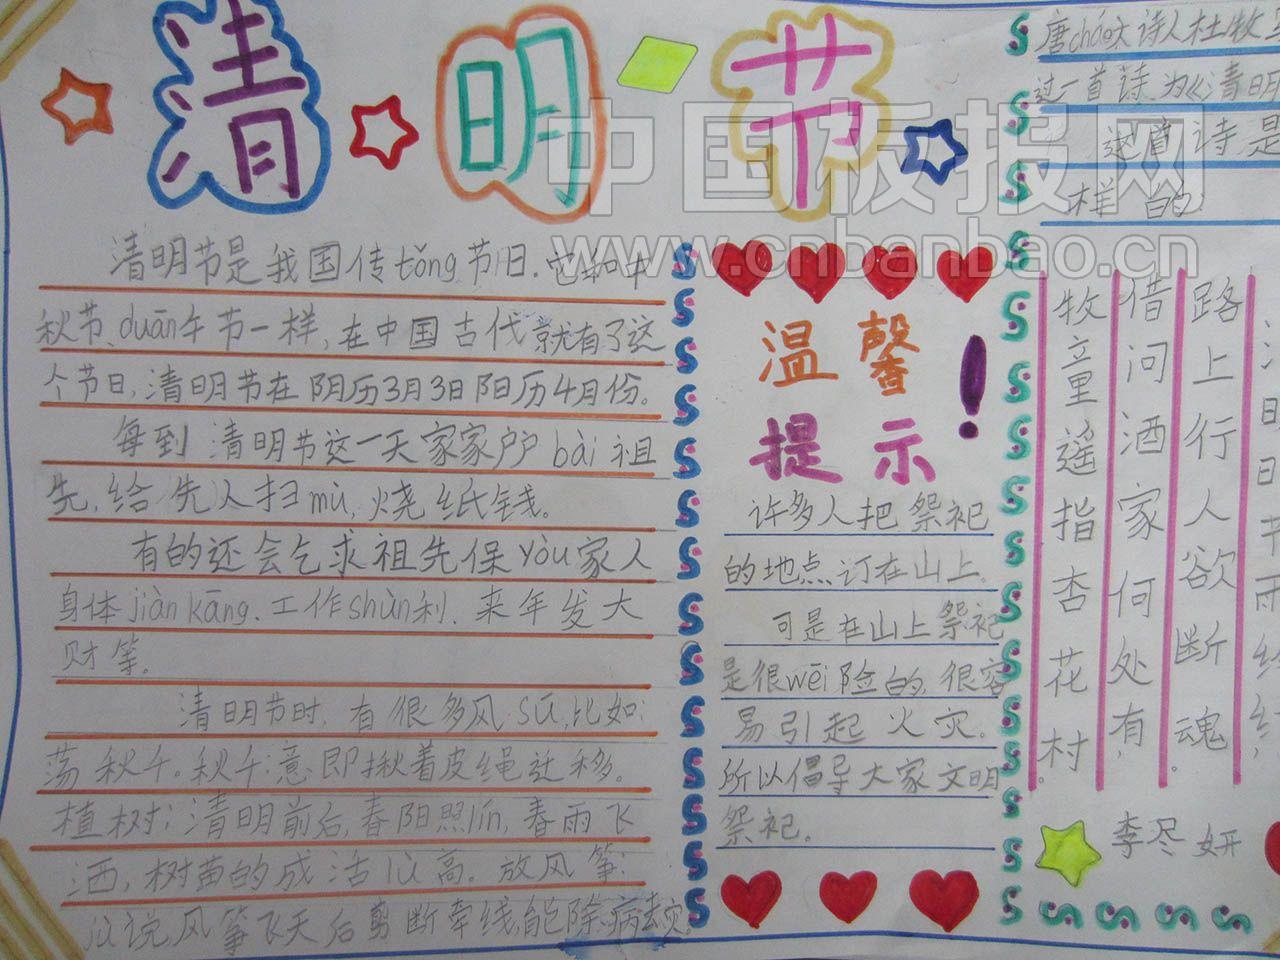 清明节
中国板报网
www.cnbanbao.cn
清明节是我国传tǒng节日.它和中
秋节、duān午节一样,在中国古代就有了这
个节日,清明节在阴历3月3日阳历4月份。
每到清明节这一天家家户户bài祖
先,给先人扫mù,烧纸钱。
有的还会乞求祖先保yòu家人
身体jiànkāng.工作shùn利.来年发大
财等。
清明节时,有很多风sú,比如:
荡秋千。秋千:意即揪着皮绳迁移。
植树:清明前后,春阳照lín,春雨飞
洒,树苗的成活lǜ高。放风筝:
说风筝飞天后剪断牵线,能除病去灾。
温馨
提示!
许多人把祭祀
的地点订在山上.
可是在山上祭祀
是很wēi险的.很容
易引起火灾.
所以倡导大家文明
祭祀.
唐cháo大诗人杜牧
过一首诗为《清明
这首诗是
样的
清明时节雨纷纷,
路上行人欲断魂。
借问酒家何处有,
牧童遥指杏花村。
李尽妍